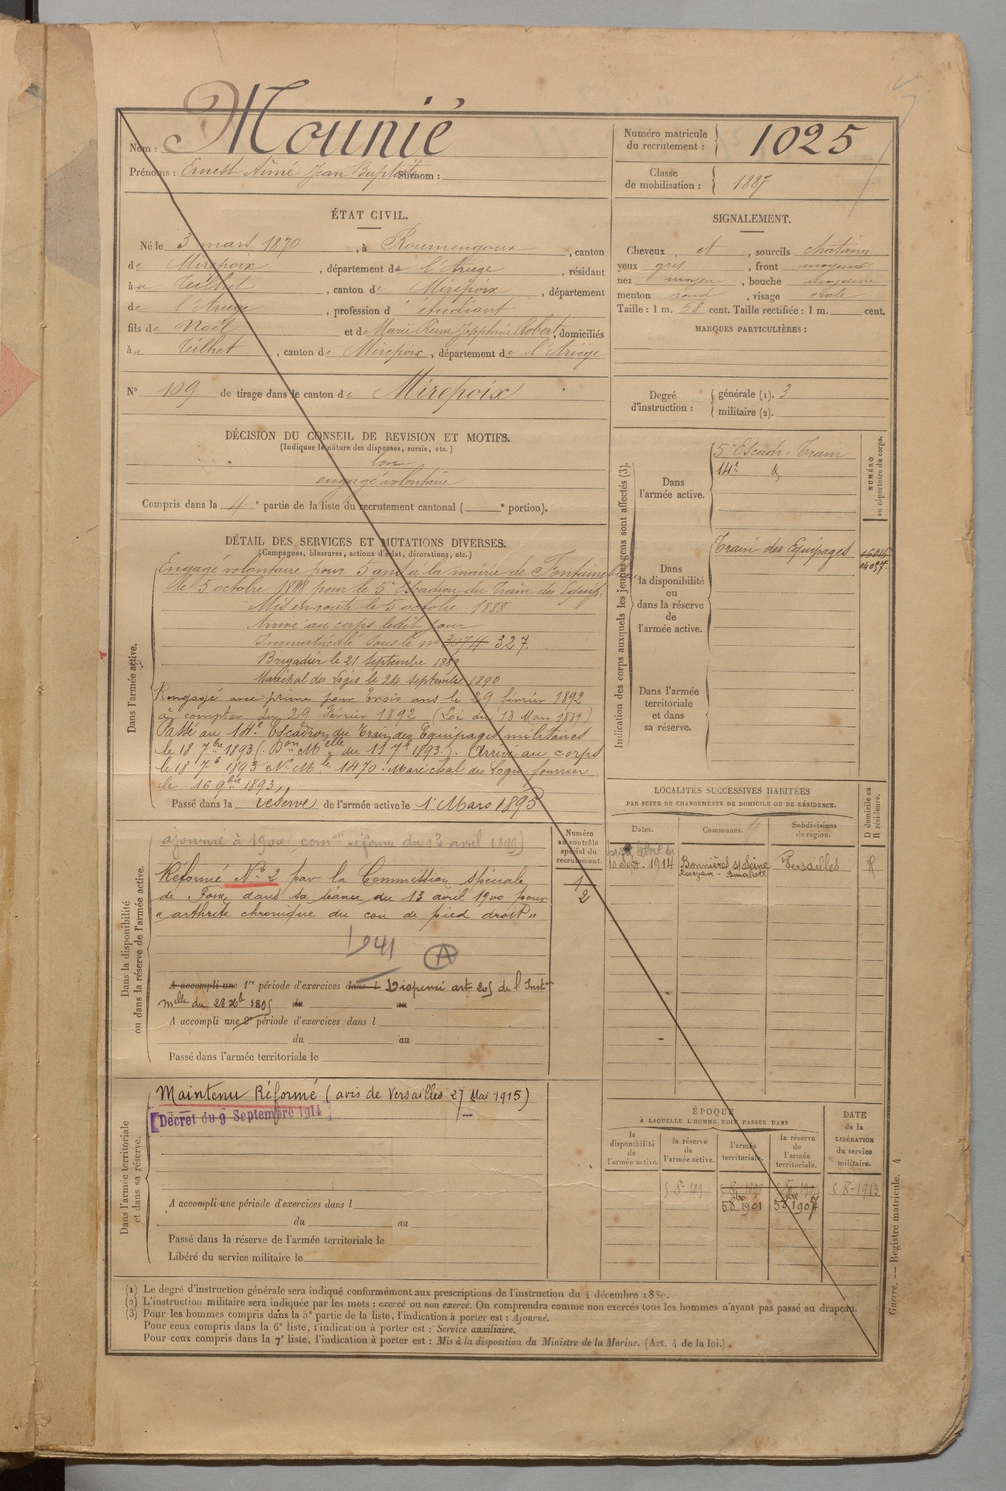 Nom : Mounié
Prénoms : Ernest Aimé Jean Baptiste Surnom :
Numéro matricule du recrutement : 1025
Classe de mobilisation : 1887
ÉTAT CIVIL.
Né le 3 mars 1870, à Roumengoux, canton
de Mirepoix, département de l'Ariège, résidant
à Teilhet, canton de Mirepoix, département
de l'Ariège, profession d'étudiant
fils de Noël et de Marie Reine Josephine Robert, domiciliés
à Teilhet, canton de Mirepoix, département de l'Ariège
N° 109 de tirage dans le canton de Mirepoix
SIGNALEMENT.
Cheveux et, sourcils chatains
yeux gris, front moyen
nez moyen, bouche moyenne
menton rond, visage ovale
Taille : 1 m. 68 cent. Taille rectifiée : 1 m. cent.
MARQUES PARTICULIÈRES :
Degré d'instruction : générale (1). 3
militaire (2).
DÉCISION DU CONSEIL DE REVISION ET MOTIFS.
(Indiquer la nature des dispenses, sursis, etc.)
bon
engagé volontaire
Compris dans la 4e partie de la liste du recrutement cantonal ( e portion).
Indication des corps auxquels les jeunes gens sont affectés (3).
NUMÉRO au répertoire du corps.
Dans l'armée active.
5e Escadr. Train
14e
Dans la disponibilité ou dans la réserve de l'armée active.
Train des Equipages
Dans l'armée territoriale et dans sa réserve.
DÉTAIL DES SERVICES ET MUTATIONS DIVERSES.
(Campagnes, blessures, actions d'éclat, décorations, etc.)
Dans l'armée active.
Engagé volontaire pour 5 ans à la mairie de Fontainebleau
le 5 octobre 1888 pour le 5e Escadron du Train des Equip.
Mis en route le 5 octobre 1888
Arrivé au corps ledit jour
Immatriculé sous le n° 3074 327.
Brigadier le 21 septembre 1889
Maréchal des Logis le 24 septembre 1890
Rengagé avec prime pour trois ans le 29 février 1892
à compter du 29 Février 1892 (Loi du 18 Mars 1889)
Passé au 14e Escadron du Train des Equipages militaires
le 18 7bre 1893 (Don Melle du 11 7b 1893). Arrivé au corps
le 18 7b 1893 No Mle 1470. Maréchal des Logis fourrier
le 16 9bre 1893
Passé dans la réserve de l'armée active le 1er Mars 1895
LOCALITÉS SUCCESSIVES HABITÉES
PAR SUITE DE CHANGEMENTS DE DOMICILE OU DE RÉSIDENCE.
D domicile ou R résidence.
Dates. Communes. Subdivisions de région.
10 Sept. 1914 Bonnières s/ Seine Versailles R
Dans la disponibilité ou dans la réserve de l'armée active.
Numéro au contrôle spécial du recrutement.
1/2
ajourné à 1900 (comon réforme du 13 avril 1899)
Réformé No 2 par la Commission spéciale
de Foix, dans sa séance du 13 avril 1900 pour
"arthrite chronique du cou de pied droit"
1941 A
A accompli une 1re période d'exercices dans l Dispensé art. 205 de l'Instron
Melle du 28 Xb 1895 du au
A accompli une 2e période d'exercices dans l
du au
Passé dans l'armée territoriale le
Dans l'armée territoriale et dans sa réserve.
Maintenu Réformé (avis de Versailles 27 Mai 1915)
Décret du 9 Septembre 1914
A accompli une période d'exercices dans l
du au
Passé dans la réserve de l'armée territoriale le
Libéré du service militaire le
ÉPOQUE
À LAQUELLE L'HOMME DOIT PASSER DANS
DATE de la LIBÉRATION du service militaire.
la disponibilité de l'armée active.
la réserve de l'armée active.
l'armée territoriale.
la réserve de l'armée territoriale.
5 8bre 1901 5 8bre 1907
(1) Le degré d'instruction générale sera indiqué conformément aux prescriptions de l'instruction du 4 décembre 1889.
(2) L'instruction militaire sera indiquée par les mots : exercé ou non exercé. On comprendra comme non exercés tous les hommes n'ayant pas passé au drapeau.
(3) Pour les hommes compris dans la 5e partie de la liste, l'indication à porter est : Ajourné.
Pour ceux compris dans la 6e liste, l'indication à porter est : Service auxiliaire.
Pour ceux compris dans la 7e liste, l'indication à porter est : Mis à la disposition du Ministre de la Marine. (Art. 4 de la loi.).
Guerre. — Registre matricule. 4